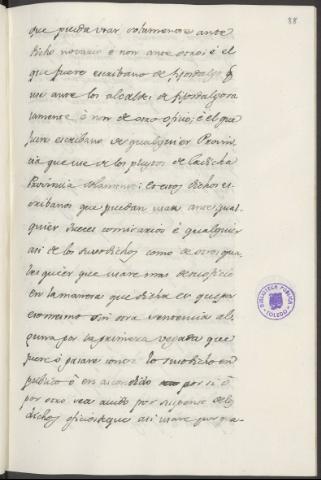 88
que pueda usar solamente ante
dicho notario è non ante otro: è el
que fuere escribano de fijosdalgo q̃
use ante los alcaldes de fijosdalgo so
lamente, è non de otro oficio; è el que
fuere escribano de qualquier Provin
cia que use de los pleytos de la dicha
Provincia solamente: èstos dichos es
cribanos que puedan usar ante qual
quier Jueces comisarios è qualquier
asi de los susodichos como de otros qua
lesquier que usare mas de un oficio
en la manera que dicha es que por
ese mismo sin otra sentencia al
guna por la primera vegada que
fuere ò pasare contra lo susodicho en
publico ò en ascondido por si ò
por otro sea avido por suspenso de los
dichos oficios que asi usare por
BIBLIOTECA PÚBLICA
TOLEDO